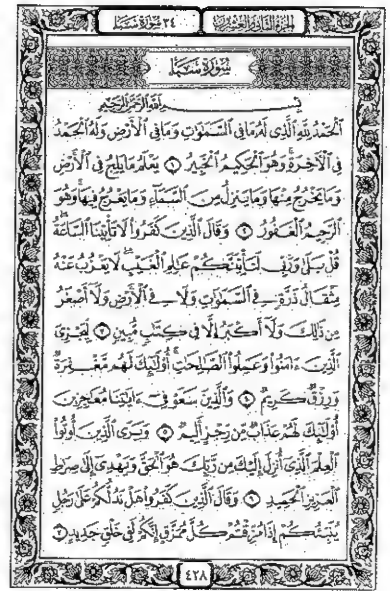 الجزء الثاني والعشرون
٣٤ سورة سبإ
سورة سبإ
بسم الله الرحمن الرحيم
ٱلْحَمْدُ لِلَّهِ ٱلَّذِى لَهُۥ مَا فِى ٱلسَّمَٰوَٰتِ وَمَا فِى ٱلْأَرْضِ وَلَهُ ٱلْحَمْدُ
فِى ٱلْأٓخِرَةِ ۚ وَهُوَ ٱلْحَكِيمُ ٱلْخَبِيرُ ١ يَعْلَمُ مَا يَلِجُ فِى ٱلْأَرْضِ
وَمَا يَخْرُجُ مِنْهَا وَمَا يَنزِلُ مِنَ ٱلسَّمَآءِ وَمَا يَعْرُجُ فِيهَا ۚ وَهُوَ
ٱلرَّحِيمُ ٱلْغَفُورُ ٢ وَقَالَ ٱلَّذِينَ كَفَرُوا۟ لَا تَأْتِينَا ٱلسَّاعَةُ ۖ
قُلْ بَلَىٰ وَرَبِّى لَتَأْتِيَنَّكُمْ عَٰلِمِ ٱلْغَيْبِ ۖ لَا يَعْزُبُ عَنْهُ
مِثْقَالُ ذَرَّةٍ فِى ٱلسَّمَٰوَٰتِ وَلَا فِى ٱلْأَرْضِ وَلَآ أَصْغَرُ
مِن ذَٰلِكَ وَلَآ أَكْبَرُ إِلَّا فِى كِتَٰبٍ مُّبِينٍ ٣ لِّيَجْزِىَ
ٱلَّذِينَ ءَامَنُوا۟ وَعَمِلُوا۟ ٱلصَّٰلِحَٰتِ ۚ أُو۟لَٰٓئِكَ لَهُم مَّغْفِرَةٌ
وَرِزْقٌ كَرِيمٌ ٤ وَٱلَّذِينَ سَعَوْ فِىٓ ءَايَٰتِنَا مُعَٰجِزِينَ
أُو۟لَٰٓئِكَ لَهُمْ عَذَابٌ مِّن رِّجْزٍ أَلِيمٌ ٥ وَيَرَى ٱلَّذِينَ أُوتُوا۟
ٱلْعِلْمَ ٱلَّذِىٓ أُنزِلَ إِلَيْكَ مِن رَّبِّكَ هُوَ ٱلْحَقَّ وَيَهْدِىٓ إِلَىٰ صِرَٰطِ
ٱلْعَزِيزِ ٱلْحَمِيدِ ٦ وَقَالَ ٱلَّذِينَ كَفَرُوا۟ هَلْ نَدُلُّكُمْ عَلَىٰ رَجُلٍ
يُنَبِّئُكُمْ إِذَا مُزِّقْتُمْ كُلَّ مُمَزَّقٍ إِنَّكُمْ لَفِى خَلْقٍ جَدِيدٍ ٧
٤٢٨